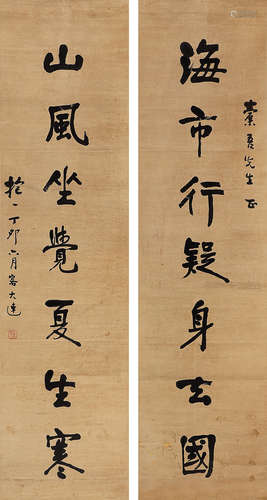 海市行疑身去國
素吾先生正
山風坐覺夏生寒
丁卯六月客大連